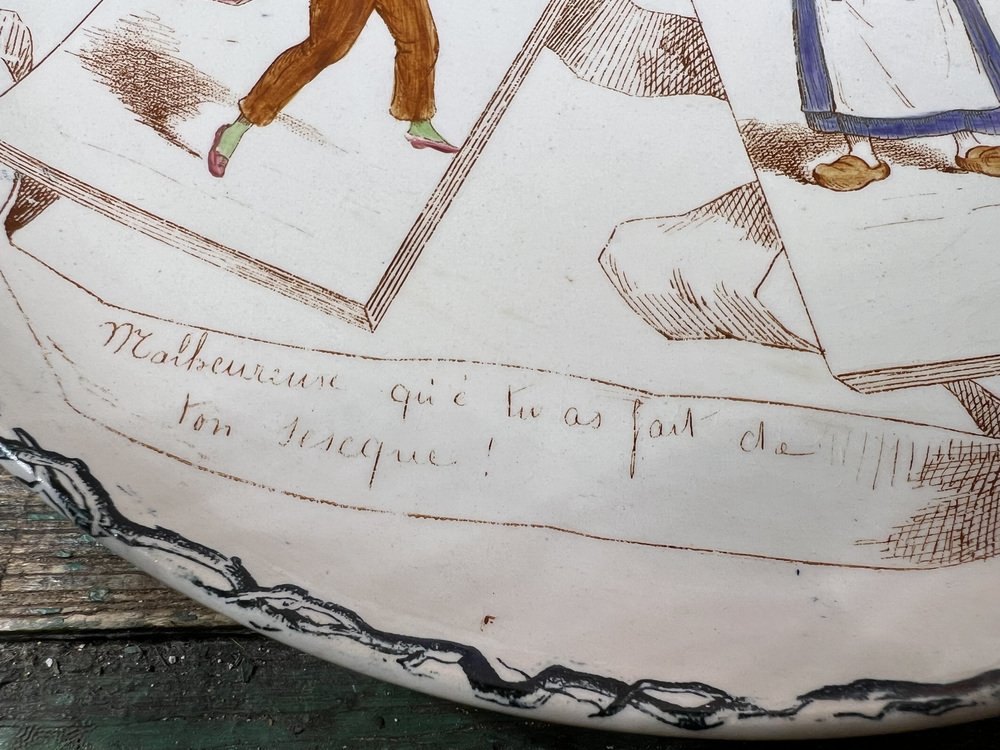 Malheureuse qu'é tu as fait de
ton sescque !